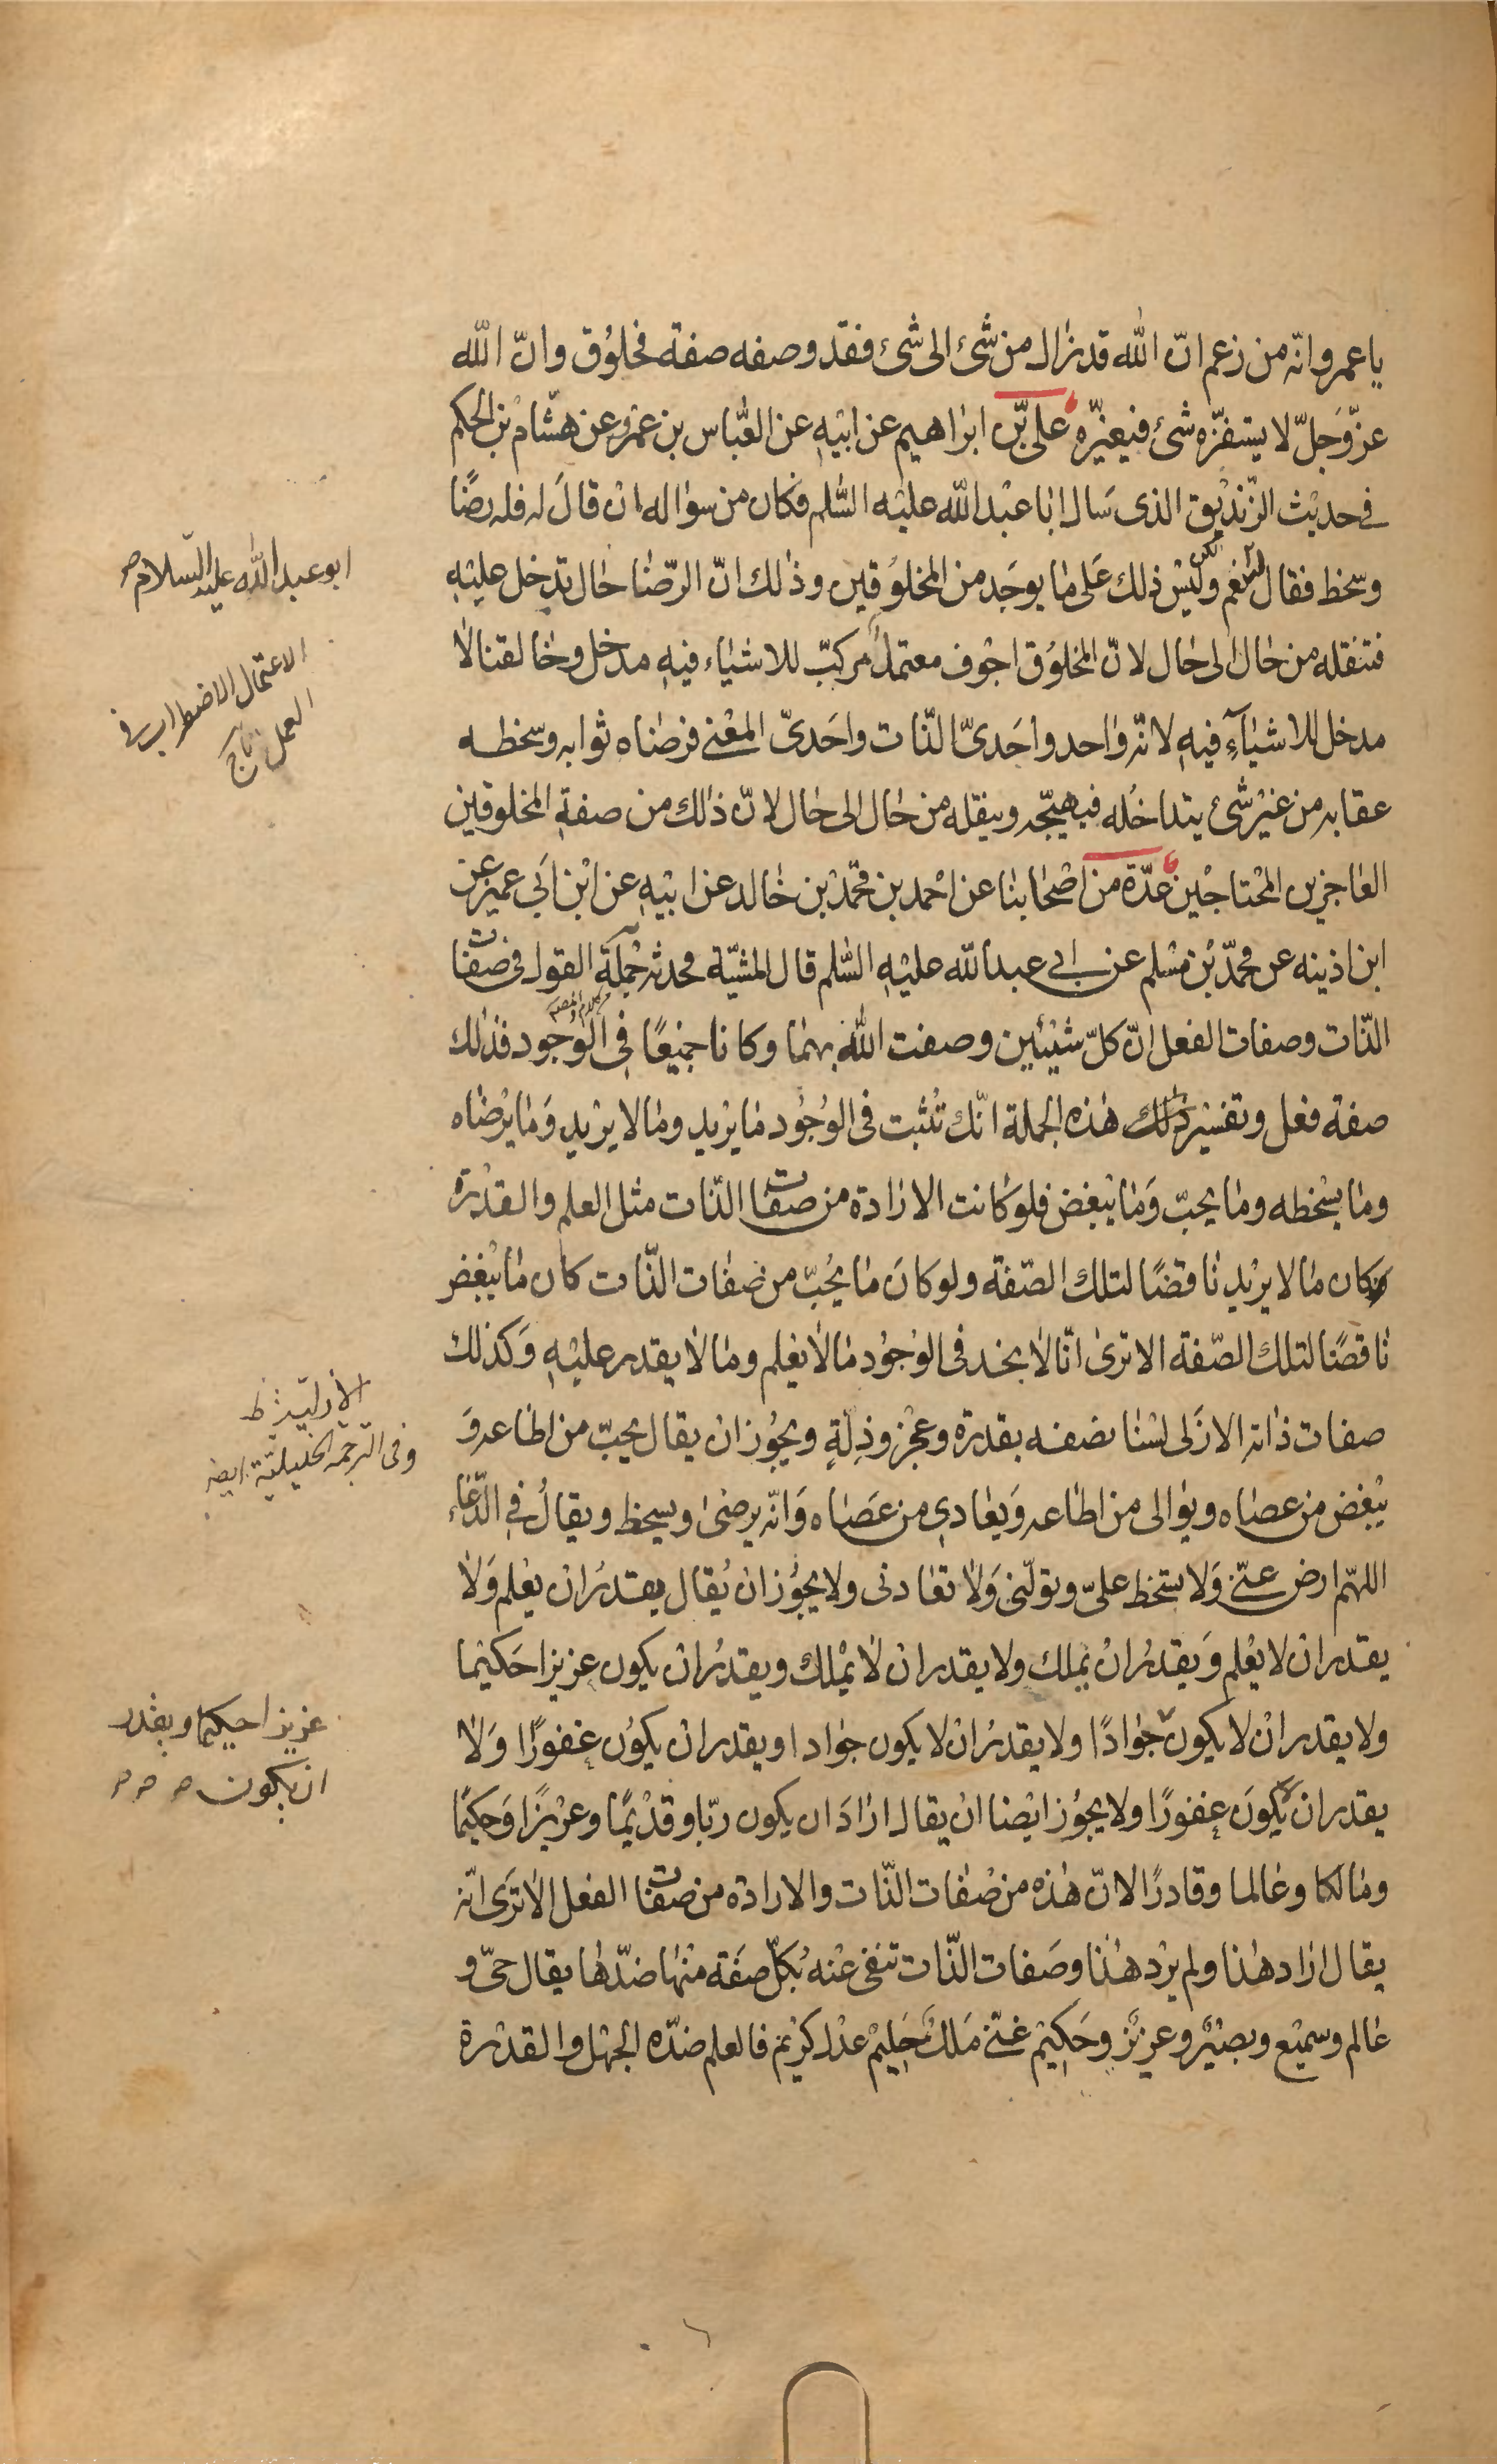 يا عمرو انّه من زعم انّ الله قد زال من شئ الى شئ فقد وصفه صفة مخلوق وانّ الله
عزّ وجلّ لا يستفزّه شئ فيغيّره علي بن ابراهيم عن ابيه عن العبّاس بن عمرو عن هشام بن الحكم
في حديث الزّنديق الذى سال ابا عبد الله عليه السّلم فكان من سؤاله ان قال له فله رضًا
وسخط فقال نعم ولكن ليس ذلك على ما يوجد من المخلوقين وذلك انّ الرّضا حال تدخل عليه
فتنقله من حال الى حال لانّ المخلوق اجوف معتمل مركّب للاشياء فيه مدخل وخالقنا لا
مدخل للاشياء فيه لانّه واحد واحدىّ الذّات واحدىّ المعنى فرضاه ثوابه وسخطه
عقابه من غير شئ يتداخله فيهيّجه وينقله من حال الى حال لانّ ذلك من صفة المخلوقين
العاجزين المحتاجين عدّة من اصحابنا عن احمد بن محمّد بن خالد عن ابيه عن ابن ابي عمير عن
ابن اذينه عن محمّد بن مسلم عن ابي عبد الله عليه السّلم قال المشيّة محدثه جملة القول في صفات
الذّات وصفات الفعل انّ كلّ شيئين وصفت الله بهما وكانا جميعًا في الوجود فذلك
صفة فعل وتفسير ذلك هذه الجملة انّك تثبت في الوجود ما يريد وما لا يريد وما يرضاه
وما يسخطه وما يحبّ وما يبغض فلو كانت الارادة من صفات الذّات مثل العلم والقدرة
كان ما لا يريد ناقضًا لتلك الصّفة ولو كان ما يحبّ من صفات الذّات كان ما يبغض
ناقضًا لتلك الصّفة الا ترى انّا لا نجد في الوجود ما لا يعلم وما لا يقدر عليه وكذلك
صفات ذاته الازلى لسنا نصفه بقدرة وعجز وذلة ويجوز ان يقال يحبّ من اطاعه و
يبغض من عصاه ويوالى من اطاعه ويعادي من عصاه وانّه يرضى ويسخط ويقال في الدّعاء
اللهمّ ارض عنّى ولا تسخط علىّ وتولّنى ولا تعادنى ولا يجوز ان يقال يقدر ان يعلم ولا
يقدر ان لا يعلم ويقدر ان يملك ولا يقدر ان لا يملك ويقدر ان يكون عزيزا حكيما
ولا يقدر ان لا يكون جوادًا ولا يقدر ان لا يكون جوادا ويقدر ان يكون غفورًا ولا
يقدر ان يكون غفورًا ولا يجوز ايضا ان يقال اراد ان يكون ربّا وقديمًا وعزيزًا وحكيمًا
ومالكا وعالما وقادرًا لانّ هذه من صفات الذّات والارادة من صفات الفعل الا ترى انّه
يقال اراد هذا ولم يرد هذا وصفات الذّات تنفى عنه بكلّ صفة منها ضدّها يقال حىّ و
عالم وسميع وبصير وعزيز وحكيم غنى ملك حليم عدل كريم فالعلم ضدّه الجهل والقدرة
ابو عبد الله عليه السّلام
الاعتمال الاضطراب في
العمل تاج
الازلية
وفى الترجمه الخليليّة ايضه
عزيزا حكيما ويقدر
ان يكون